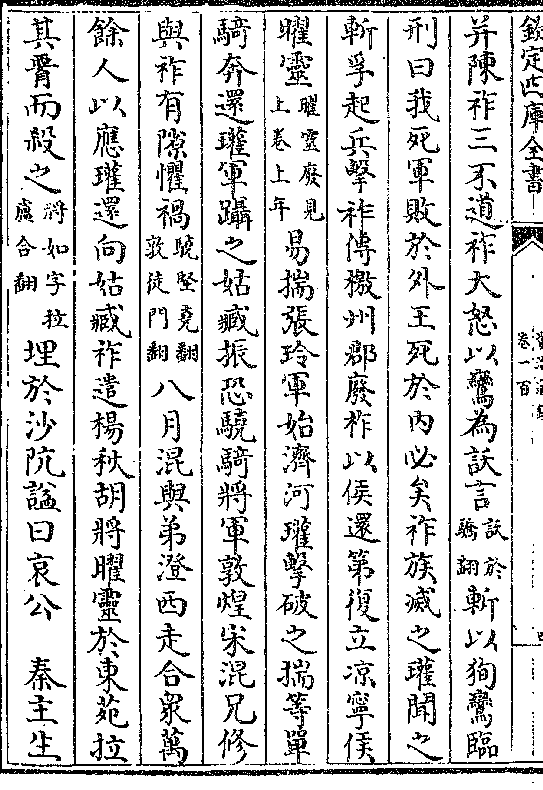 欽定四庫全書
卷一百
并陳祚三不道祚大怒以鸞為訞言訞於驕翻斬以狥鸞臨
刑曰我死軍敗於外王死於内必矣祚族滅之瓘聞之
斬孚起兵擊祚傳檄州郡廢祚以侯還第復立凉寧侯
曜靈曜靈廢見上卷上年易揣張玲軍始濟河瓘擊破之揣等單
騎奔還瓘軍躡之姑臧振恐驍騎將軍敦煌宋混兄修
與祚有隙懼禍驍堅堯翻敦徒門翻八月混與弟澄西走合衆萬
餘人以應瓘還向姑臧祚遣楊秋胡將曜靈於東苑拉
其脅而殺之將如字拉盧合翻埋於沙阬諡曰哀公　秦主生